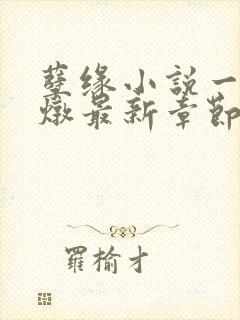 孽缘小説一
燉最新章節
羅榆才